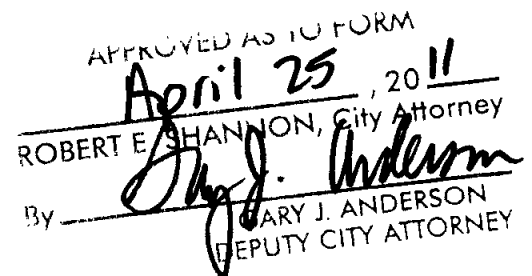 APPROVED AS TO FORM
April 25, 20 11
ROBERT E. SHANNON, City Attorney
By Gary J. Anderson
GARY J. ANDERSON
DEPUTY CITY ATTORNEY